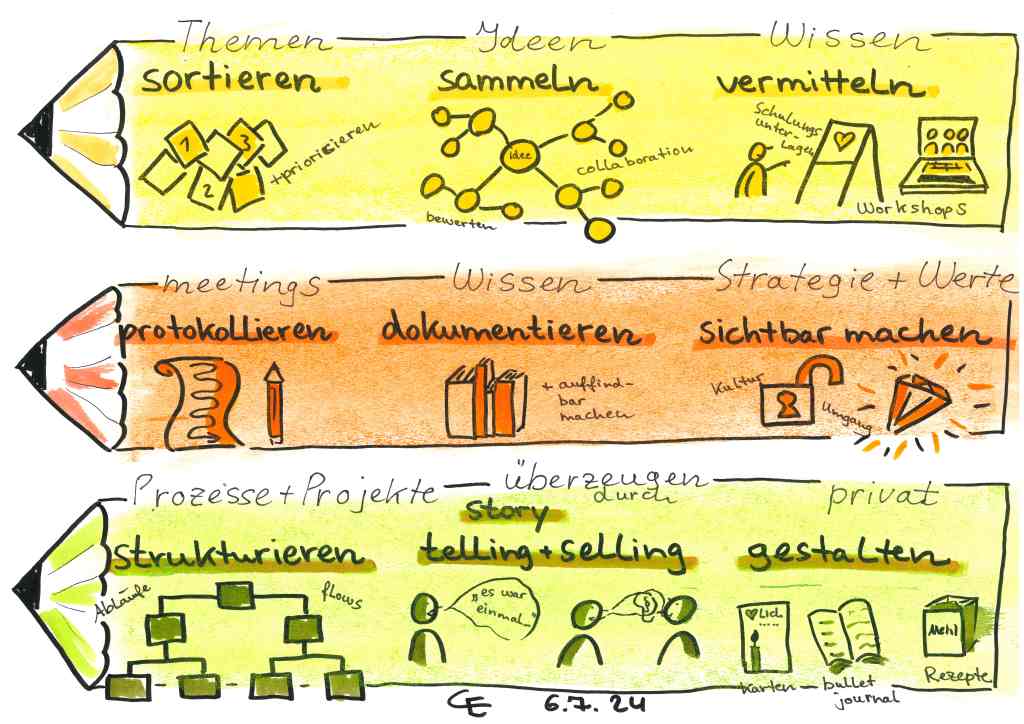 Themen
sortieren
1
3
2
+priorisieren
Ydeen
sammeln
idee
collaboration
bewerten
Wissen
vermitteln
Schulungs
unter-
lagen
Workshops
meetings
protokollieren
Wissen
dokumentieren
+ auffind-
bar
machen
Strategie + Werte
sichtbar machen
Kultur
Umgang
Prozesse + Projekte
strukturieren
Abläufe
flows
überzeugen
durch
story
telling + selling
„es war
einmal..."
§
privat
gestalten
Lich
Karten
bullet
journal
Mehl
Rezepte
CE 6.7.24